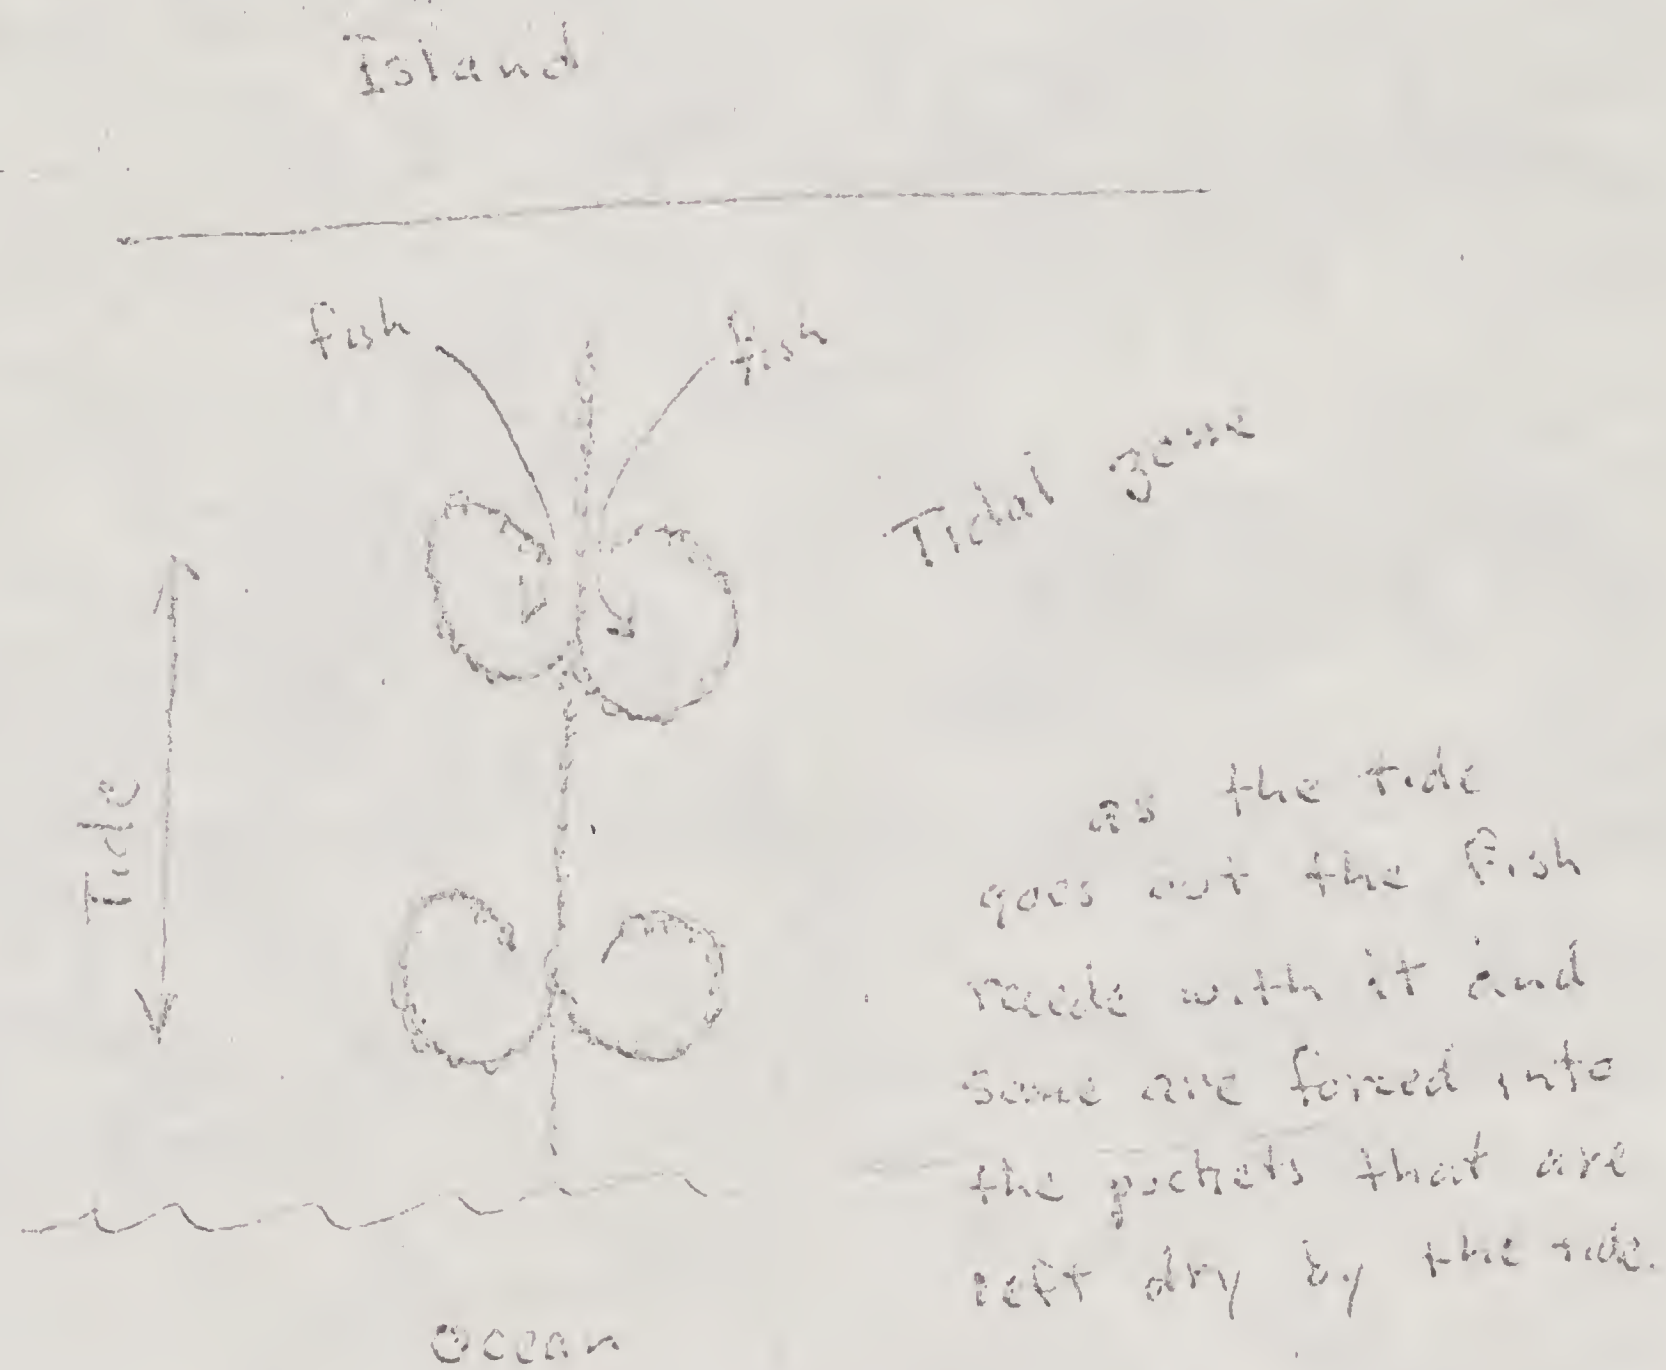 Island
fish
fish
Tidal zone
Tide
as the tide
goes out the fish
recede with it and
some are forced into
the pockets that are
left dry by the tide.
Ocean